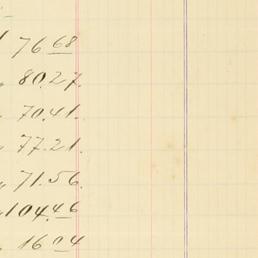 76 68
80.27.
70.41.
77.21.
71.56.
104.46
16 04